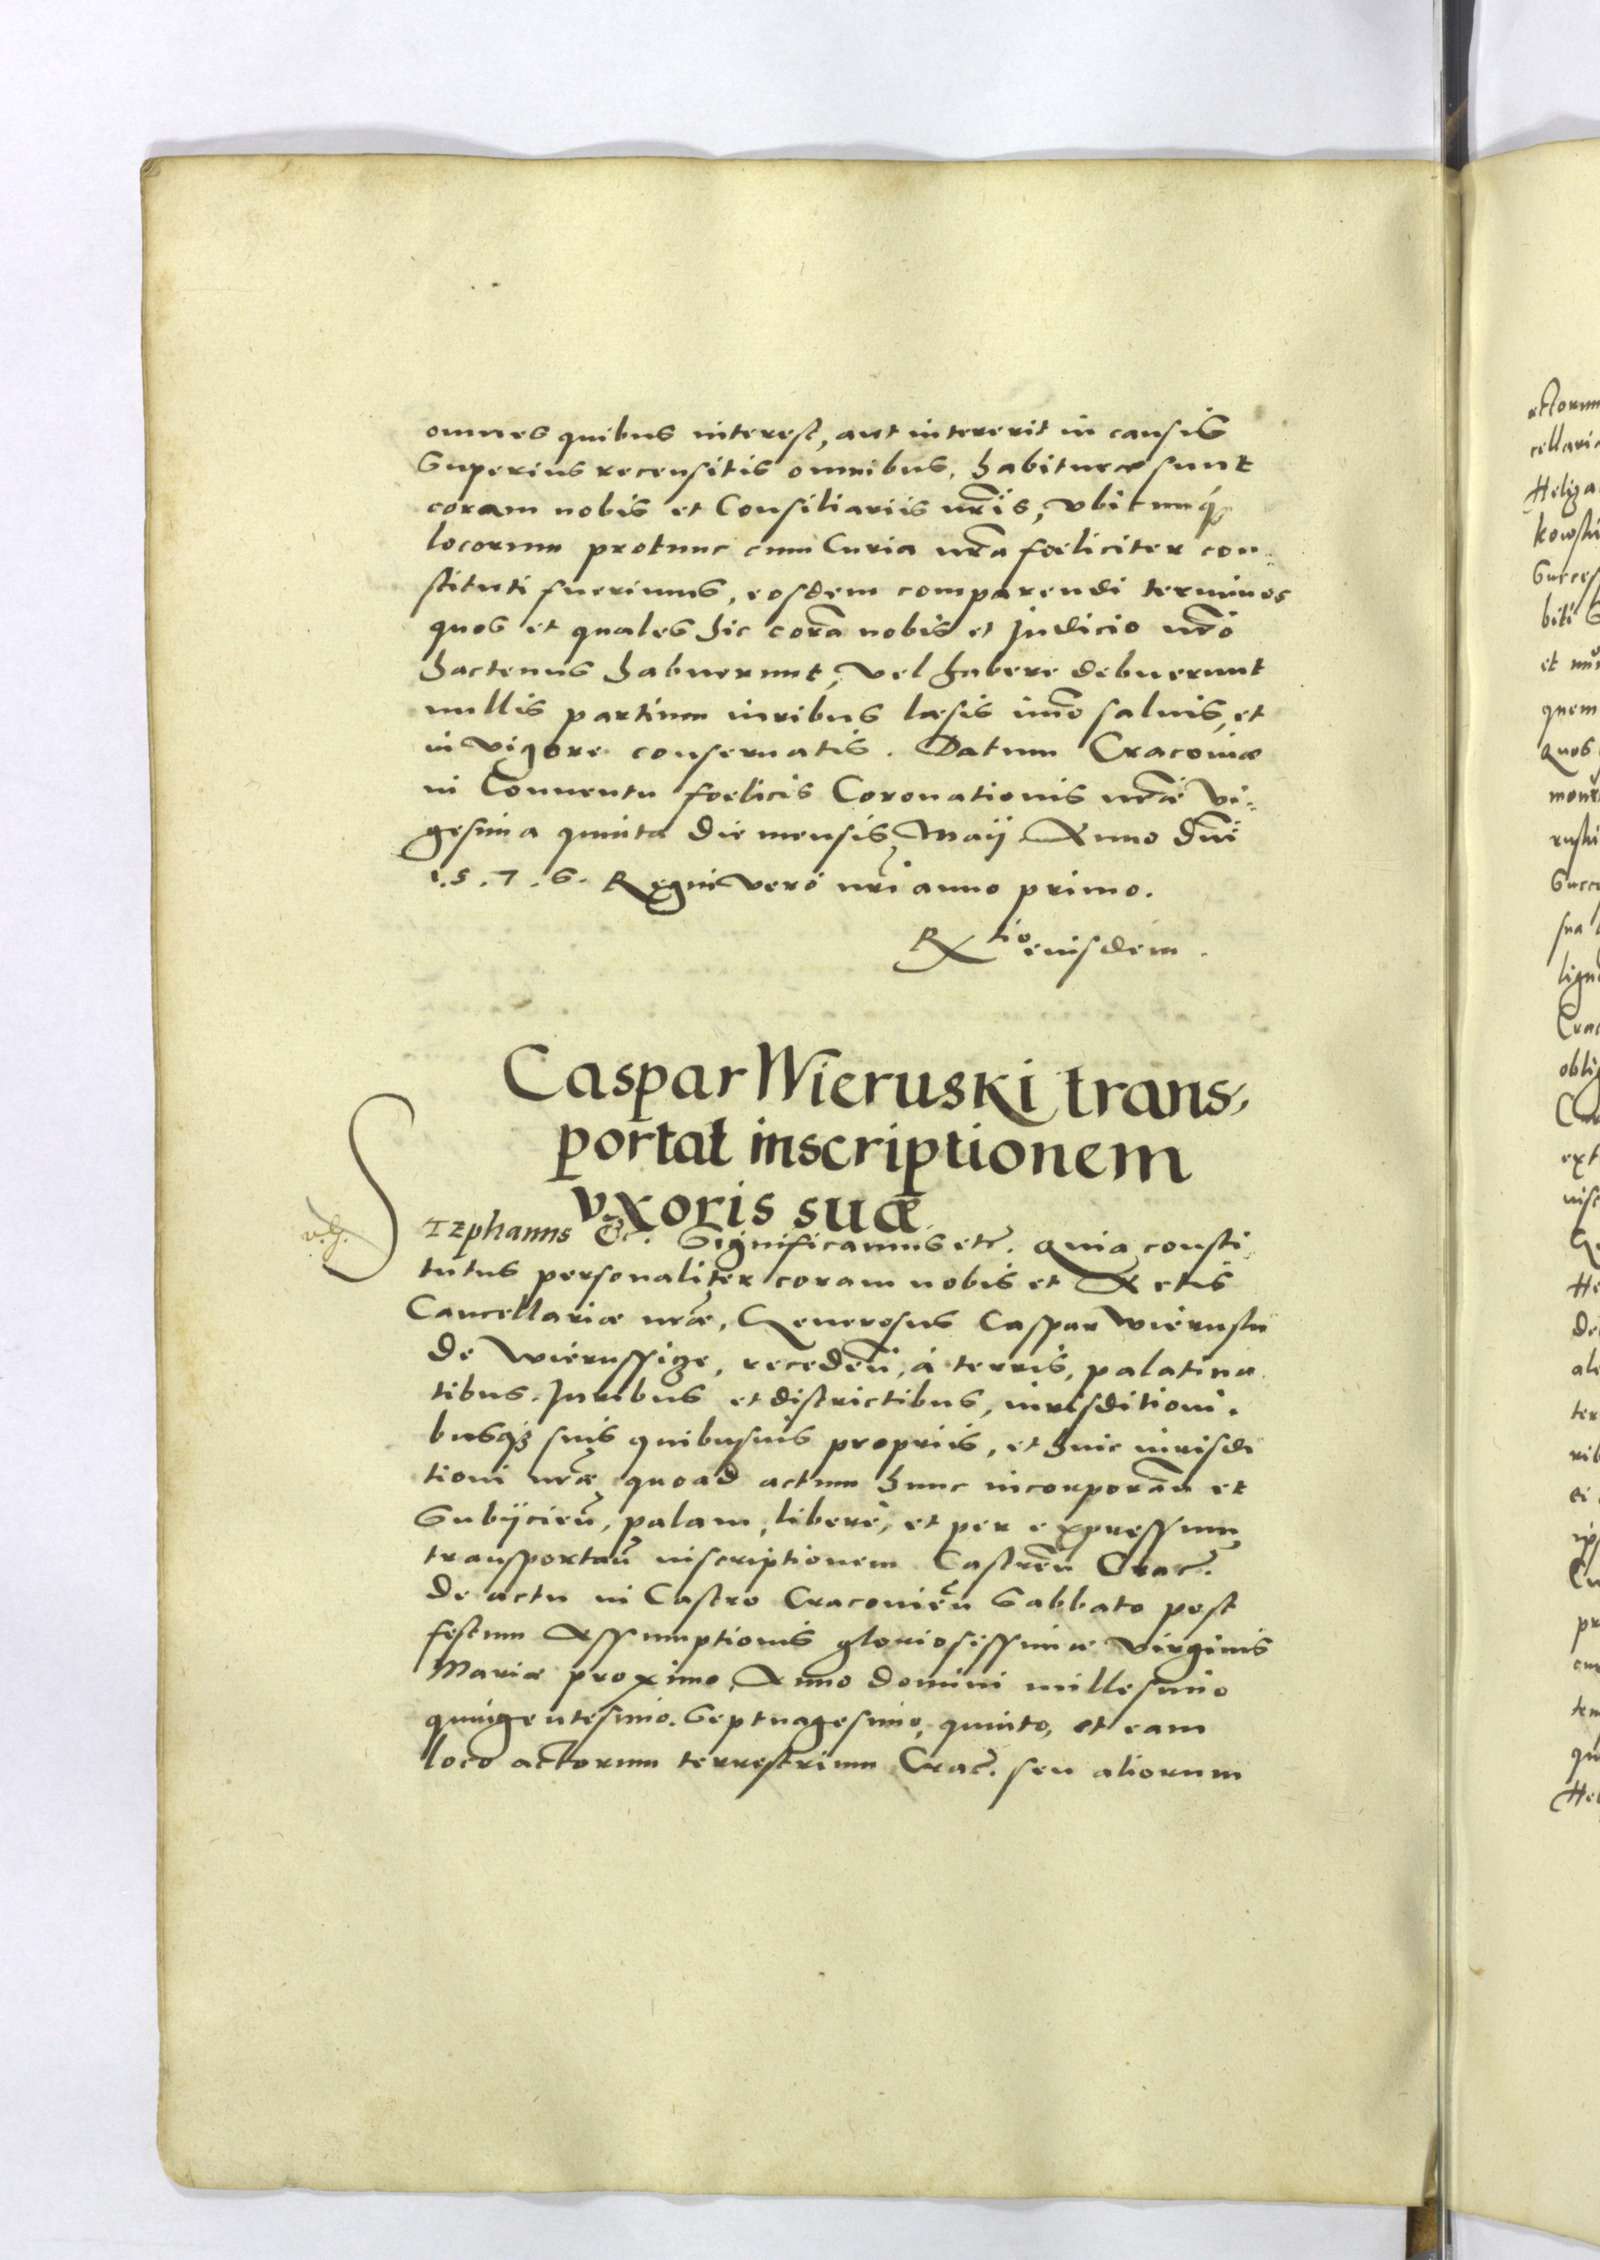 omnes quibus interest, aut intererit in causis
superius recensitis omnibus, habituræ sunt
coram nobis et Consiliariis nr̃is, vbicunq́
locorum protunc cum Curia nr̃a fœliciter con-
stituti fuerimus, eosdem comparendi terminos
quos et quales hic corã nobis et Judicio nr̃o
hactenus habuerunt, vel habere debuerunt
nullis partium iuribus læsis imo saluis, et
in vigore conseruatis. Datum Cracouiæ
in Conuentu fœlicis Coronationis nr̃æ Vi-
gesima quinta die mensis Maij Anno Dñi
1.5.7.6. Regni vero nr̃i anno primo.
Rtio eiusdem.
Caspar Wieruski trans-
portat inscriptionem
vxoris suæ
Stephanus &c. Significamus etc̃. Quia consti
tutus personaliter coram nobis et Actis
Cancellariæ nr̃æ, Generosus Caspar Wieruski
de Wierussicze, recedeñ, á terris, palatina
tibus. Juribus et districtibus, iurisditioni-
busq́ȝ suis quibusuis propriis, et huic iurisdi
tioni nr̃æ quoad actum hunc incorporãn et
Subijcieñ, palam, liberè, et per expressum
transportauit̃ inscriptionem Castreñ Crac̃.
de actu in Castro Cracouieñ Sabbato post
festum Assumptionis gloriosissimæ Virginis
Mariæ proximo, Anno domini millesimo
quingentesimo. Septuagesimo, quinto, et eam
loco actorum terrestrium Crac̃. seu aliorum